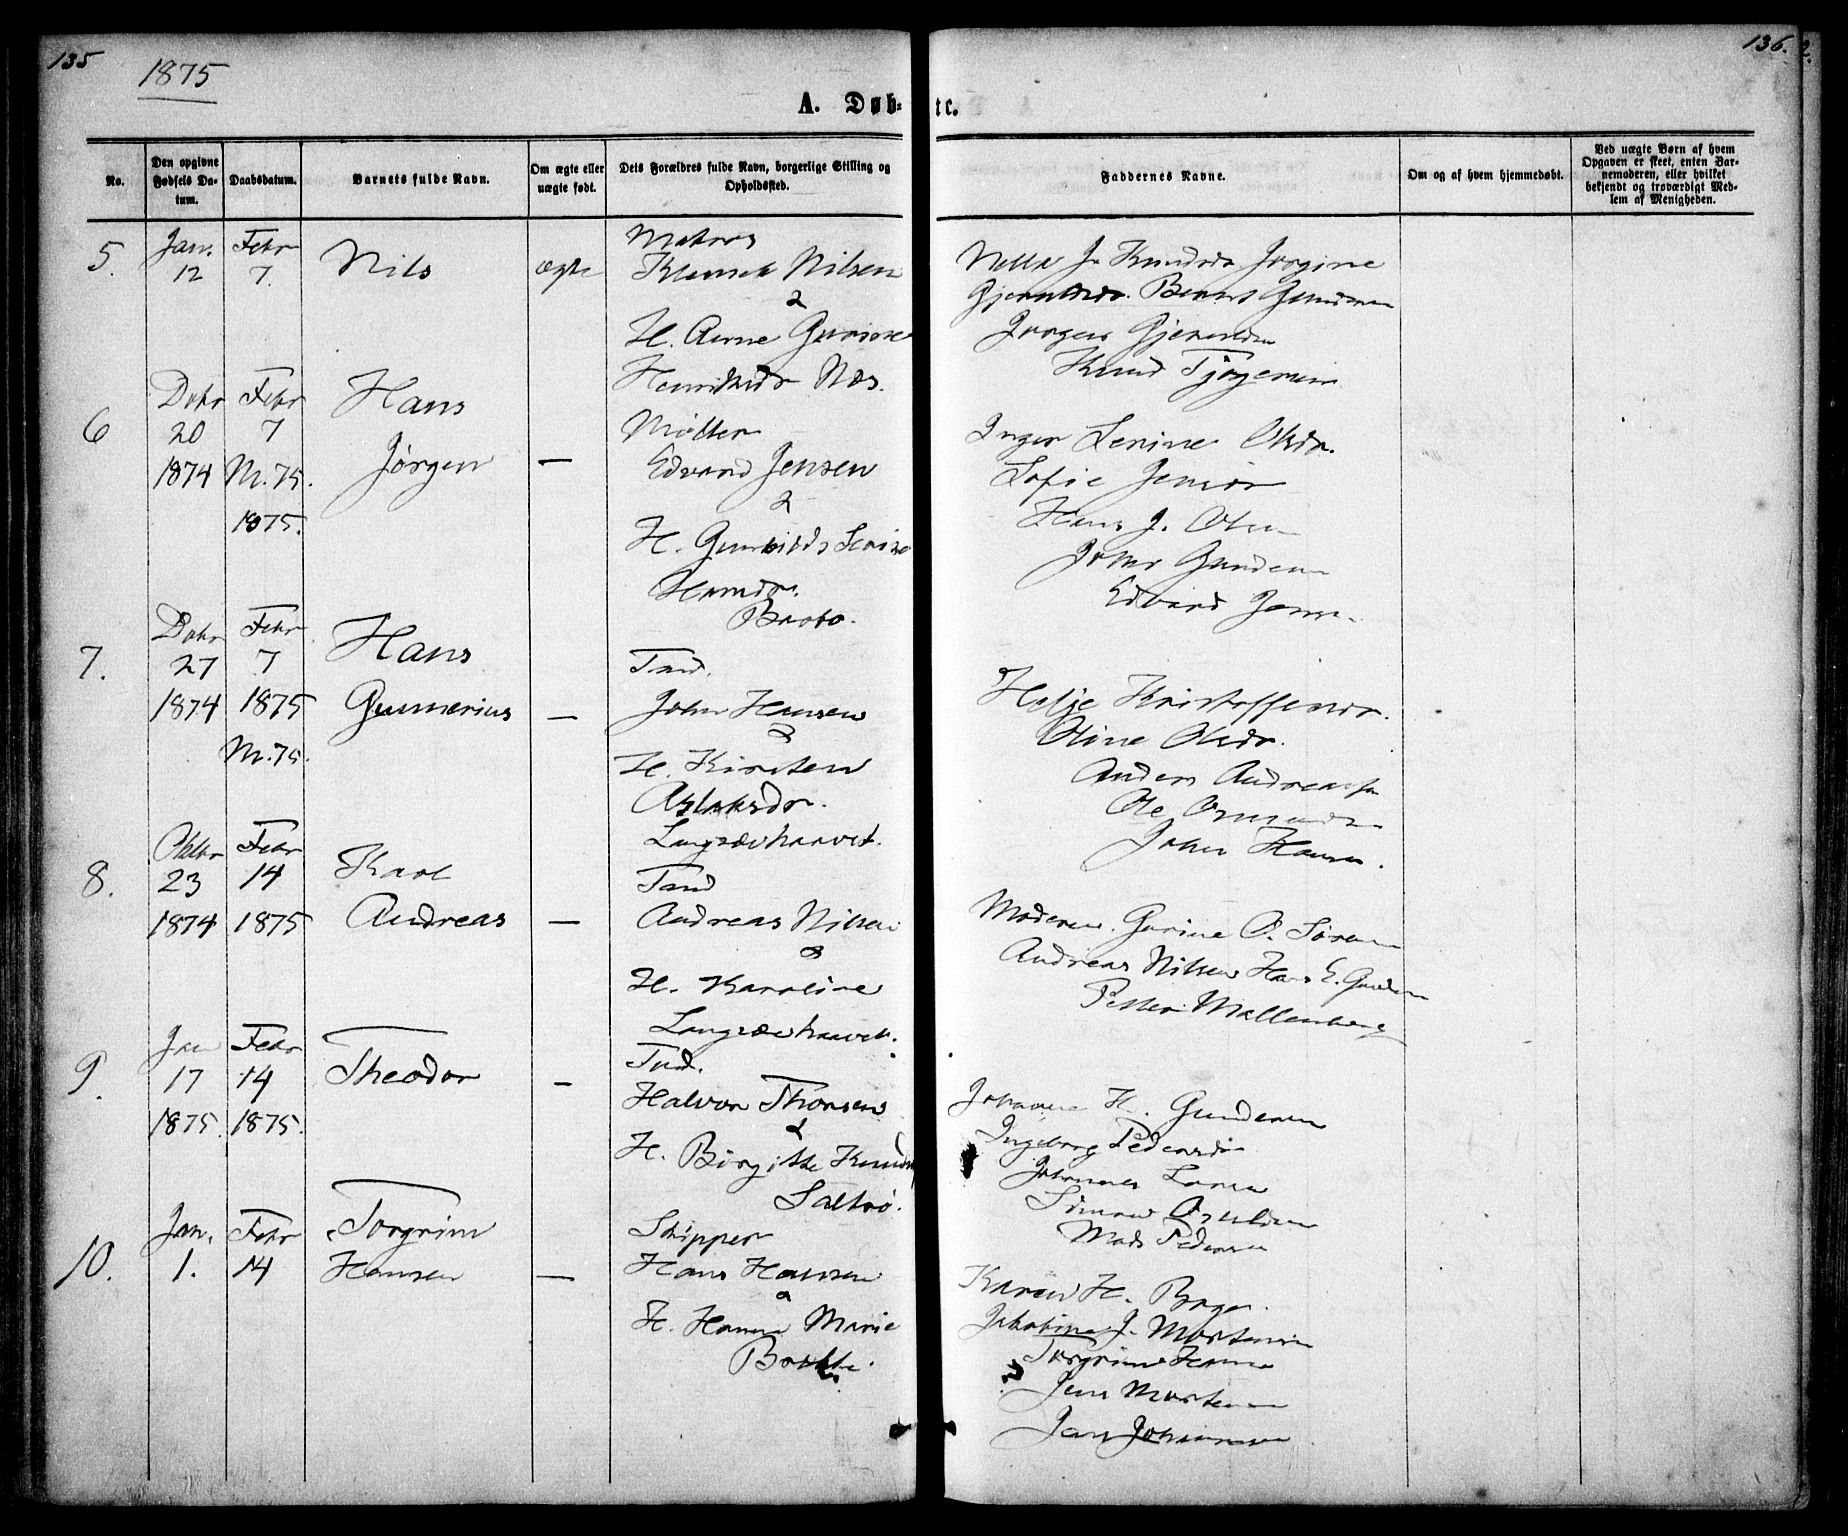 135
136.
2.
1875
A. Døb-
tc.
No.
Den opgivne
Fødsels Da-
tum.
Daabsdatum.
Barnets fulde Navn.
Om ægte eller
uægte født.
Dets Forældres fulde Navn, borgerlige Stilling og
Opholdssted.
Faddernes Navne.
Om og af hvem hjemmedøbt.
Ved uægte Børn af hvem
Opgaven er skeet, enten Bar-
nemoderen, eller hvilket
bekjendt og troværdigt Med-
lem af Menigheden.
5.
Jan.
12
Febr
7.
Nils
ægte
Matros
Nilsen
&
H. Anne
Næs.
Jørgine
Jørgen
Knud
6
Debr
20
1874
Febr
7
M. 75.
1875.
Hans
Jørgen
—
Møller
Edvard Jensen
&
H.
Inger Lenine Olsdr.
Sofie
Hans J. Olsen
John Gundersen
Edvard Jensen.
7.
Debr
27
1874
Febr
7
1875
M. 75.
Hans
Gunnerius
—
Tømd.
John Hansen
&
H. Kirsten
Aslaksdr.
Langsævhaavet.
Helje Kristoffersdr.
Oline Olsdr.
Anders Andreassen
Ole
John Hansen.
8.
Oktbr
23
1874
Febr
14
1875
Karl
Andreas
—
Tømd
Andreas Nilsen
&
H. Karoline
Langsævhaavet.
Moderen. Gurine O. Sørensen
Andreas Nilsen Hans E. Gundersen
Petter Mallenberg
9.
Jan
17
1875.
Febr
14
1875.
Theodor
—
Tmd.
Halvor Thorsen
&
H. Birgitte
Saltrø.
Johanne H. Gundersen
Ingeborg Pedersdr
Johannes Larsen
Mads Pedersen
10.
Jan.
1.
Febr
14
Torgrim
Hansen
—
Skipper
Hans Hansen
&
H. Hanna Marie
Karen H.
Jakobine J. Mortensen
Torgrim Hansen
Jens Mortensen
Jens Johansen